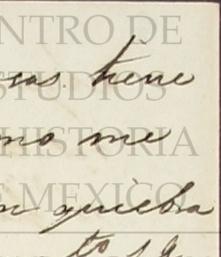 NTRO DE
cas tiene
STUDIOS
mo me
HISTORIA
E MEXICO
n quiebra